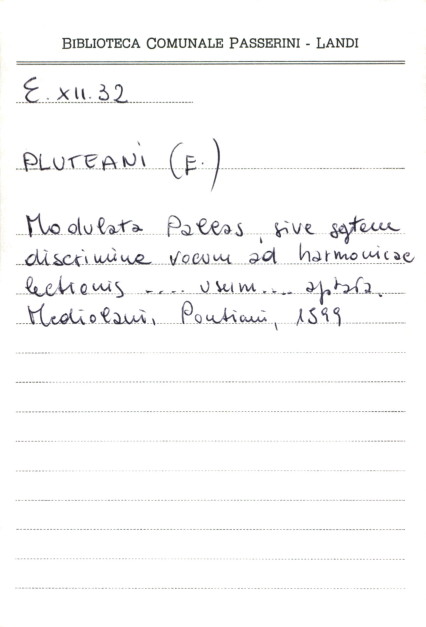 BIBLIOTECA COMUNALE PASSERINI - LANDI
E. XII. 32
PLUTEANI (E.)
Modulata Pallas, sive septem
discrimine vocum ad harmonicae
lectionis .... usum .... aptata.
Mediolani, Pontiani, 1599